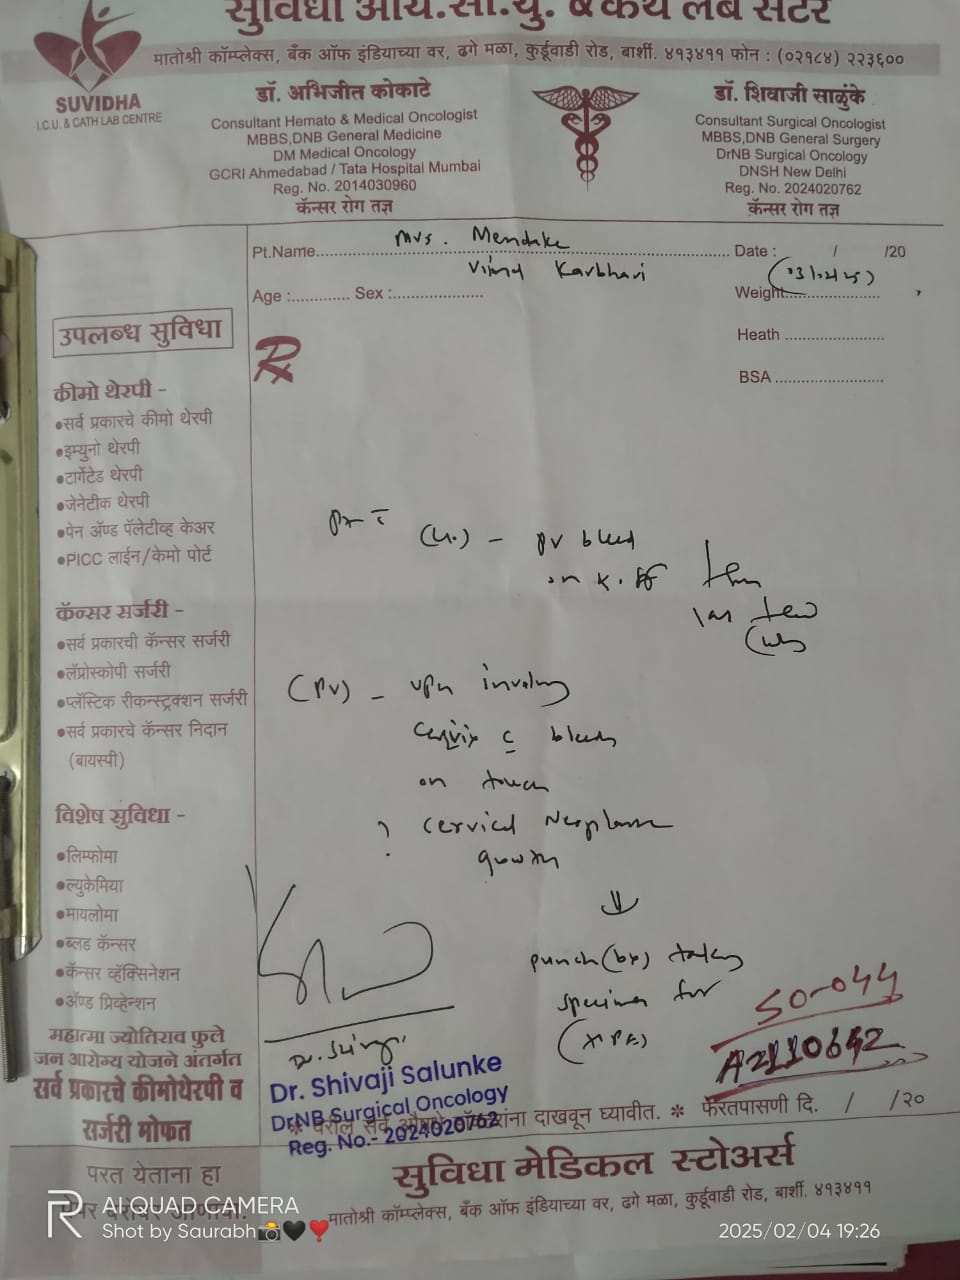 सुविधा आय.सी.यु. & कॅथ लॅब सेंटर
मातोश्री कॉम्प्लेक्स, बँक ऑफ इंडियाच्या वर, ढगे मळा, कुर्डूवाडी रोड, बार्शी. ४१३४११ फोन : (०२१८४) २२३६००
SUVIDHA
I.C.U. & CATH LAB CENTRE
डॉ. अभिजीत कोकाटे
Consultant Hemato & Medical Oncologist
MBBS,DNB General Medicine
DM Medical Oncology
GCRI Ahmedabad / Tata Hospital Mumbai
Reg. No. 2014030960
कॅन्सर रोग तज्ञ
डॉ. शिवाजी साळुंके
Consultant Surgical Oncologist
MBBS,DNB General Surgery
DrNB Surgical Oncology
DNSH New Delhi
Reg. No. 2024020762
कॅन्सर रोग तज्ञ
Pt.Name Mrs. Mendake
Karbhari
Date : / /20
Age : Sex :
Weight
Heath
BSA
Rx
उपलब्ध सुविधा
कीमो थेरपी -
•सर्व प्रकारचे कीमो थेरपी
•इम्युनो थेरपी
•टार्गेटेड थेरपी
•जेनेटीक थेरपी
•पेन अ‍ॅण्ड पॅलेटीव्ह केअर
•PICC लाईन/केमो पोर्ट
कॅन्सर सर्जरी -
•सर्व प्रकारची कॅन्सर सर्जरी
•लॅप्रोस्कोपी सर्जरी
•प्लॅस्टिक रीकन्स्ट्रक्शन सर्जरी
•सर्व प्रकारचे कॅन्सर निदान
(बायस्पी)
विशेष सुविधा -
•लिम्फोमा
•ल्युकेमिया
•मायलोमा
•ब्लड कॅन्सर
•कॅन्सर व्हॅक्सिनेशन
•अ‍ॅण्ड प्रिव्हेन्शन
महात्मा ज्योतिराव फुले
जन आरोग्य योजने अंतर्गत
सर्व प्रकारचे कीमोथेरपी व
सर्जरी मोफत
परत येताना हा
pv bleed
on
few
(PV) - involving
cervix c bleeds
on touch
? cervical Neoplasm
growth
↓
punch (bx) taken
specimen for
(HPE)
SO-044
A2110642
Dr. Shivaji Salunke
DrNB Surgical Oncology
Reg. No.- 2024020762
दाखवून घ्यावीत. * फेरतपासणी दि. / /२०
सुविधा मेडिकल स्टोअर्स
मातोश्री कॉम्प्लेक्स, बँक ऑफ इंडियाच्या वर, ढगे मळा, कुर्डूवाडी रोड, बार्शी. ४१३४११
AI QUAD CAMERA
Shot by Saurabh📸🖤❣️
2025/02/04 19:26